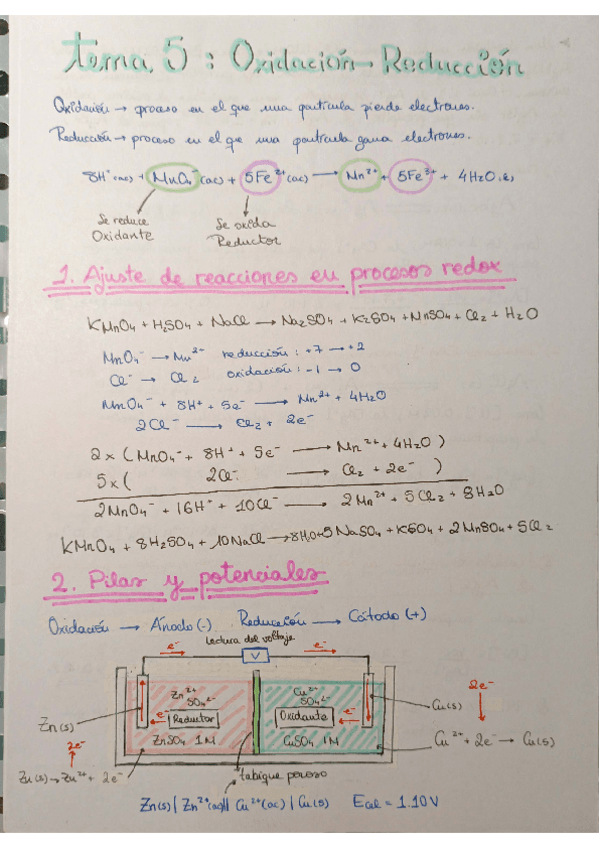 tema 5 : Oxidación - Reducción
Oxidación → proceso en el que una partícula pierde electrones.
Reducción → proceso en el que una partícula gana electrones.
8H⁺(ac) + MnO₄⁻(ac) + 5Fe²⁺(ac) → Mn²⁺ + 5Fe³⁺ + 4H₂O (l)
Se reduce
Oxidante
Se oxida
Reductor
1. Ajuste de reacciones en procesos redox
KMnO₄ + H₂SO₄ + NaCl → Na₂SO₄ + K₂SO₄ + MnSO₄ + Cl₂ + H₂O
MnO₄⁻ → Mn²⁻ reducción : +7 → +2
Cl⁻ → Cl₂ oxidación : -1 → 0
MnO₄⁻ + 8H⁺ + 5e⁻ → Mn²⁺ + 4H₂O
2Cl⁻ → Cl₂ + 2e⁻
2 x ( MnO₄⁻ + 8H⁺ + 5e⁻ → Mn²⁺ + 4H₂O )
5 x ( 2Cl⁻ → Cl₂ + 2e⁻ )
2MnO₄⁻ + 16H⁺ + 10Cl⁻ → 2Mn²⁺ + 5Cl₂ + 8H₂O
KMnO₄ + 8H₂SO₄ + 10NaCl → 8H₂O + 5NaSO₄ + KSO₄ + 2MnSO₄ + 5Cl₂
2. Pilas y potenciales
Oxidación → Ánodo (-) Reducción → Cátodo (+)
Lectura del voltaje
e⁻ V e⁻
Zn²⁺
SO₄²⁻
Reductor e⁻
ZnSO₄ 1M
Cu²⁺
SO₄²⁻
Oxidante e⁻
CuSO₄ 1M
Zn(s)
2e⁻
Zn(s) → Zn²⁺ + 2e⁻
tabique poroso
Cu(s)
2e⁻
Cu²⁺ + 2e⁻ → Cu(s)
Zn(s) | Zn²⁺(ac) || Cu²⁺(ac) | Cu(s) Ecel = 1.10V